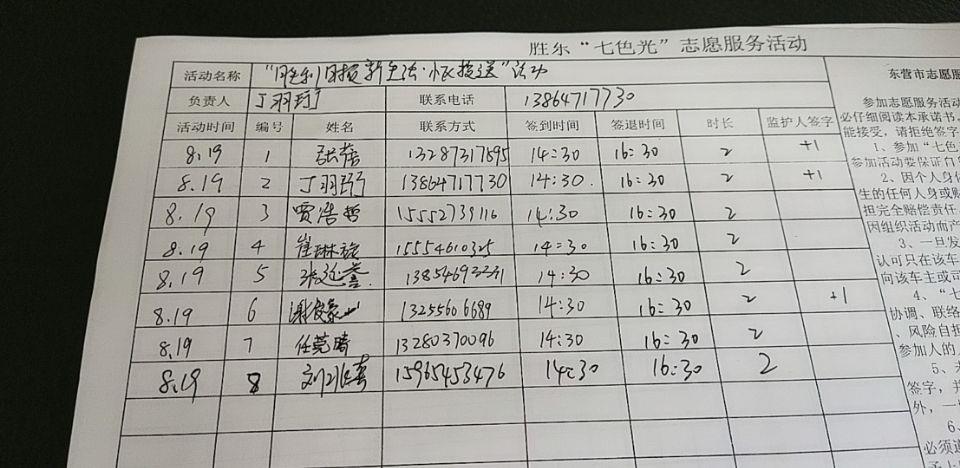 胜东“七色光”志愿服务活动
活动名称 “胜利日报新生活·小区投送”活动
负责人 丁羽 联系电话 13864717730
活动时间 编号 姓名 联系方式 签到时间 签退时间 时长 监护人签字
8.19 1 13287317895 14:30 16:30 2 +1
8.19 2 丁羽 13864717730 14:30. 16:30 2 +1
8.19 3 贾浩哲 15552739116 14:30 16:30 2
8.19 4 崔琳 15554610325 14:30 16:30 2
8.19 5 张 14:30 16:30 2
8.19 6 谢 13255606689 14:30 16:30 2 +1
8.19 7 任莞晴 13280370096 14:30 16:30 2
8.19 8 刘 15965453476 14:30 16:30 2
东营市志愿服
参加志愿服务活动
必仔细阅读本承诺书,
能接受，请拒绝签字
1、参加“七色
参加活动要保证自
2、因个人身
生的任何人身或财
担完全赔偿责任
因组织活动而产
3、一旦发
认可只在该车
向该车主或司
4、“七
协调、联络
、风险自担
参加人的
5、未
签字，并
外，一
6、
必须遵